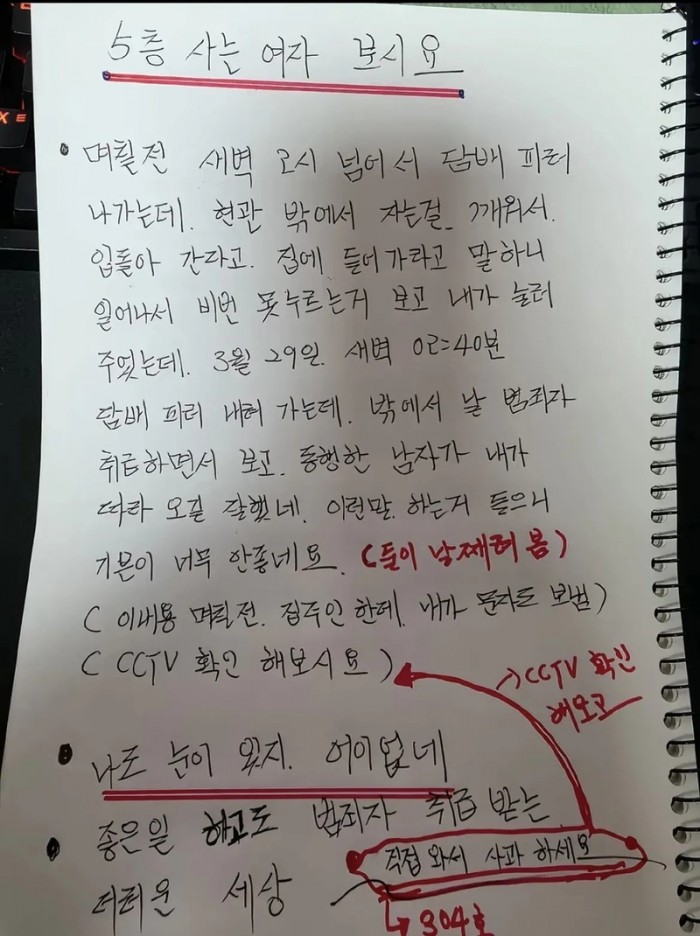 5층 사는 여자 보시요
며칠전 새벽 2시 넘어서 담배 피러
나가는데. 현관 밖에서 자는걸 깨워서.
입돌아 간다고. 집에 들어가라고 말하니
일어나서 비번 못누르는거 보고 내가 눌러
주었는데. 3월 29일. 새벽 02:40분
담배 피러 내려 가는데. 밖에서 날 범죄자
취급하면서 보고. 동행한 남자가 내가
따라 오길 잘했네. 이런말. 하는거 들으니
기분이 너무 안좋네요. (둘이 날 째려 봄)
( 이내용 며칠전. 집주인 한테. 내가 문자도 보냄)
( CCTV 확인 해보시요 )
CCTV 확인
해보고
나도 눈이 있지. 어이없네
좋은일 하고도 범죄자 취급 받는
직접 와서 사과 하세요
더러운 세상
304호